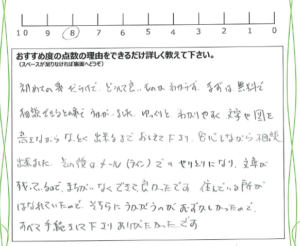 10 9 8 7 6 5 4 3 2 1 0
おすすめ度の点数の理由をできるだけ詳しく教えて下さい。
(スペースが足りなければ裏面へどうぞ)
初めての事だらけで、どれて良いものかわからず、まずは無料で
相談できるとの事でうかがいました。ゆっくりとわかりやすく文字や図を
書きながらなっとく出来るまでおしえて下さり、安心しながら相談
出来ました。その後はメール(ライン)でのやりとりになり、文章が
残っているので、まちがいなくできて良かったです。住んでいる所が
はなれていたので、そちらにうかがうのがむずかしかったので、
すべて手続きして下さりありがたかったです